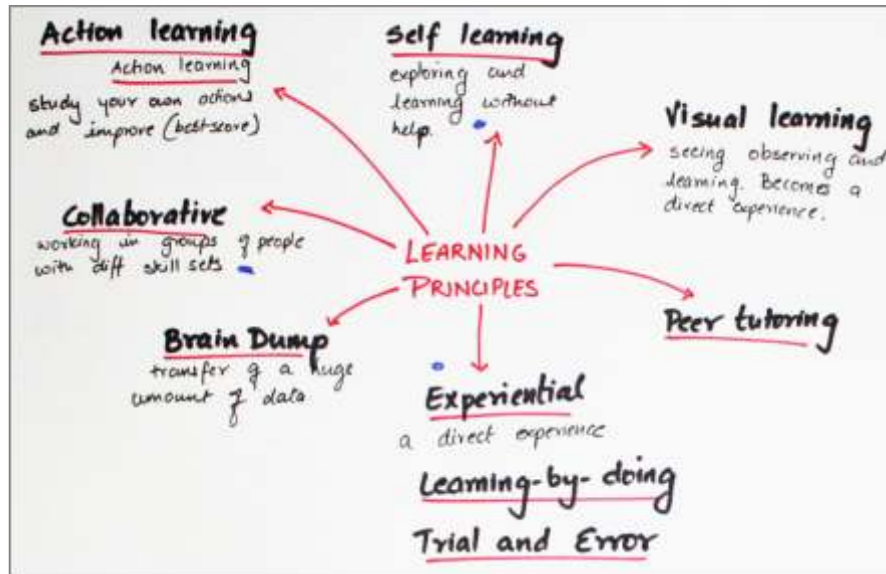 Action learning
Action learning
study your own actions
and improve (best-score)
Self learning
exploring and
learning without
help.
Visual learning
seeing observing and
learning. Becomes a
direct experience.
Collaborative
working in groups of people
with diff skill sets
LEARNING
PRINCIPLES
Peer tutoring
Brain Dump
transfer of a huge
amount of data
Experiential
a direct experience
Learning-by-doing
Trial and Error